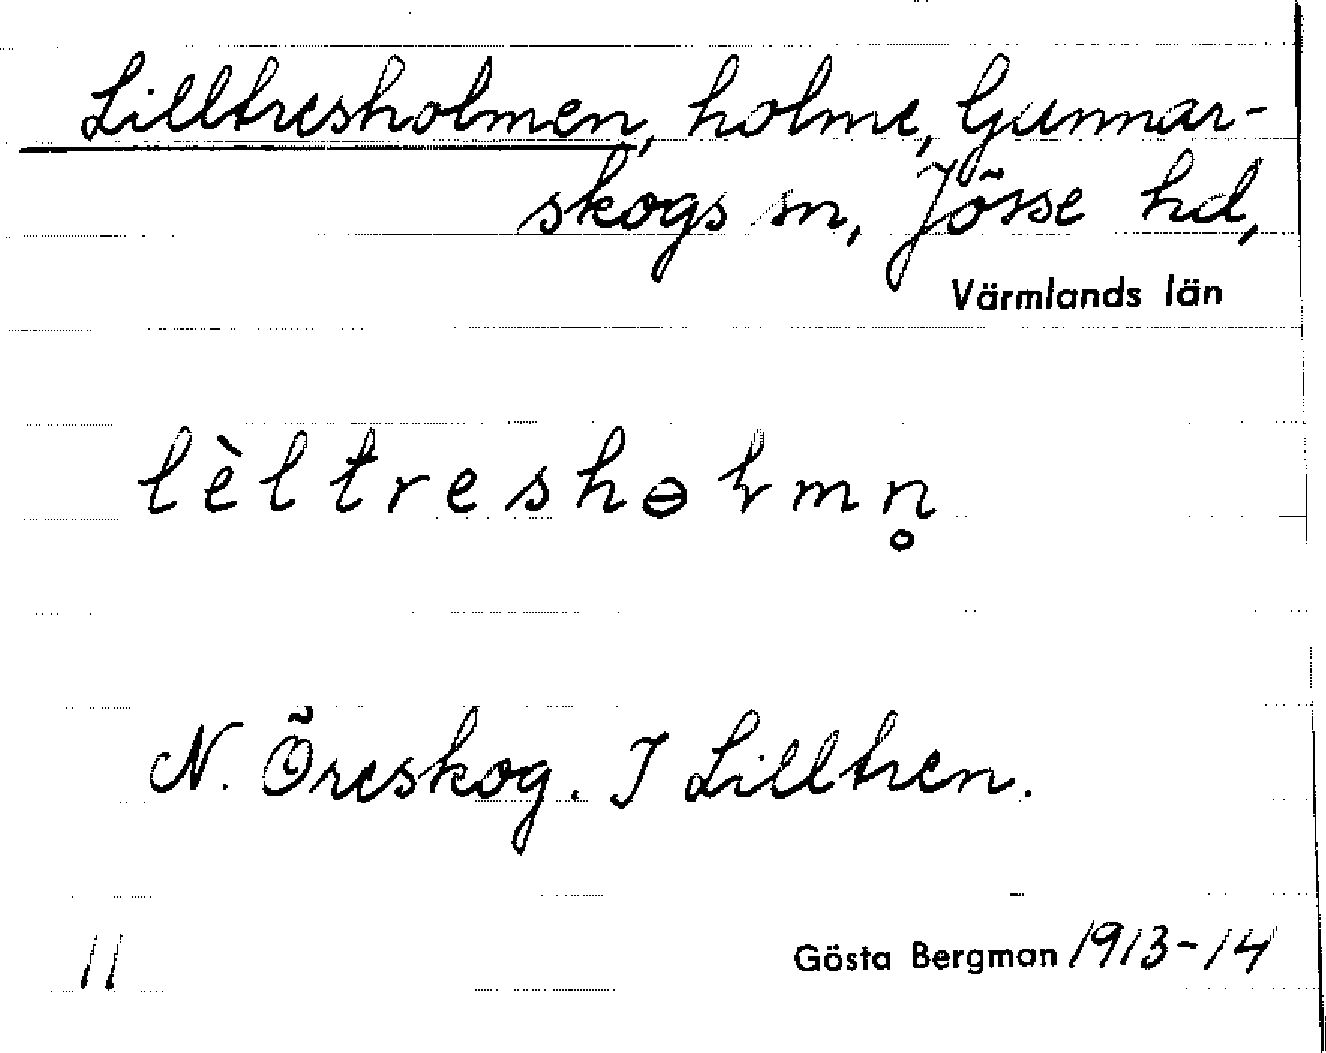 Lilltresholmen, holme, Gunnar-
skogs sn, Jösse hd,
Värmlands län
lèltreshɵɽmn̥
N. Öreskog. I Lilltren.
11
Gösta Bergman 1913-14